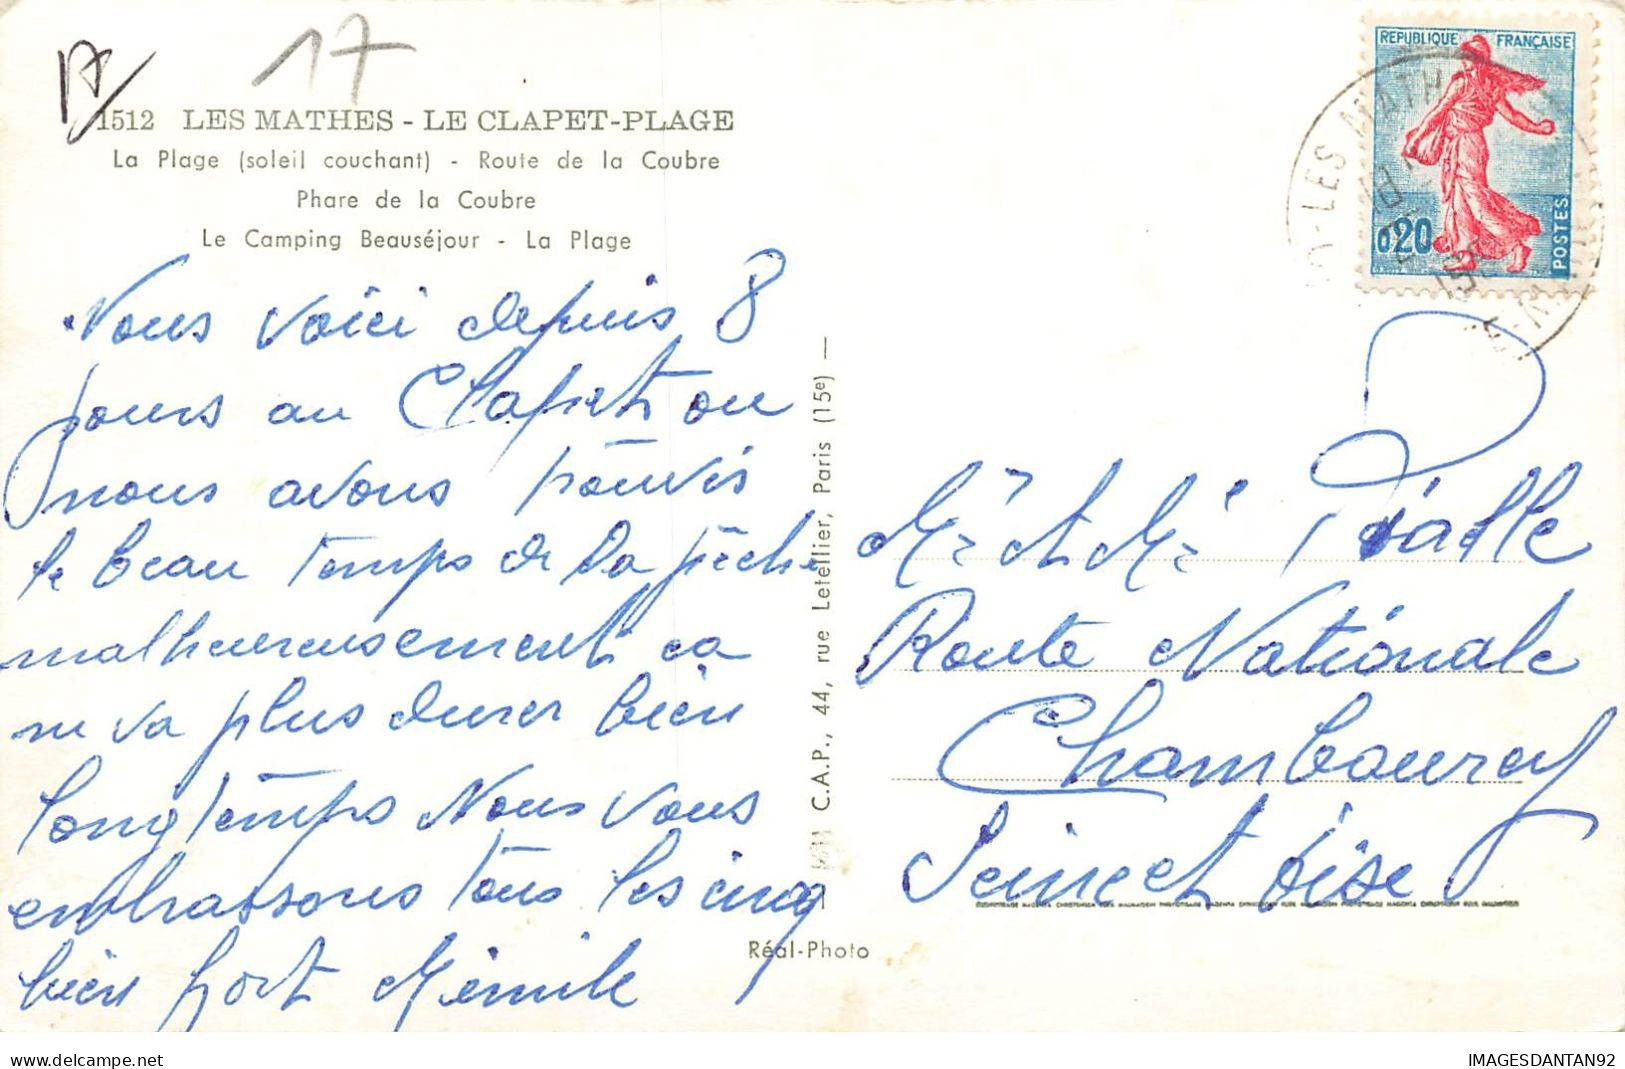 17
17
1512 LES MATHES - LE CLAPET-PLAGE
La Plage (soleil couchant) - Route de la Coubre
Phare de la Coubre
Le Camping Beauséjour - La Plage
Nous voici depuis 8
jours au Clapet ou
nous avons trouvés
le beau temps de la pêche
malheureusement ca
ne va plus durer bien
longtemps Nous vous
embrassons tous les cinq
bien fort Mémile
C.A.P., 44, rue Letellier, Paris (15e) —
Réal-Photo
REPUBLIQUE FRANÇAISE
0,20
POSTES
LES MATH
Mr et Me
Route Nationale
Chambourcy
Seine et Oise
IMAGESDANTAN92
delcampe.net